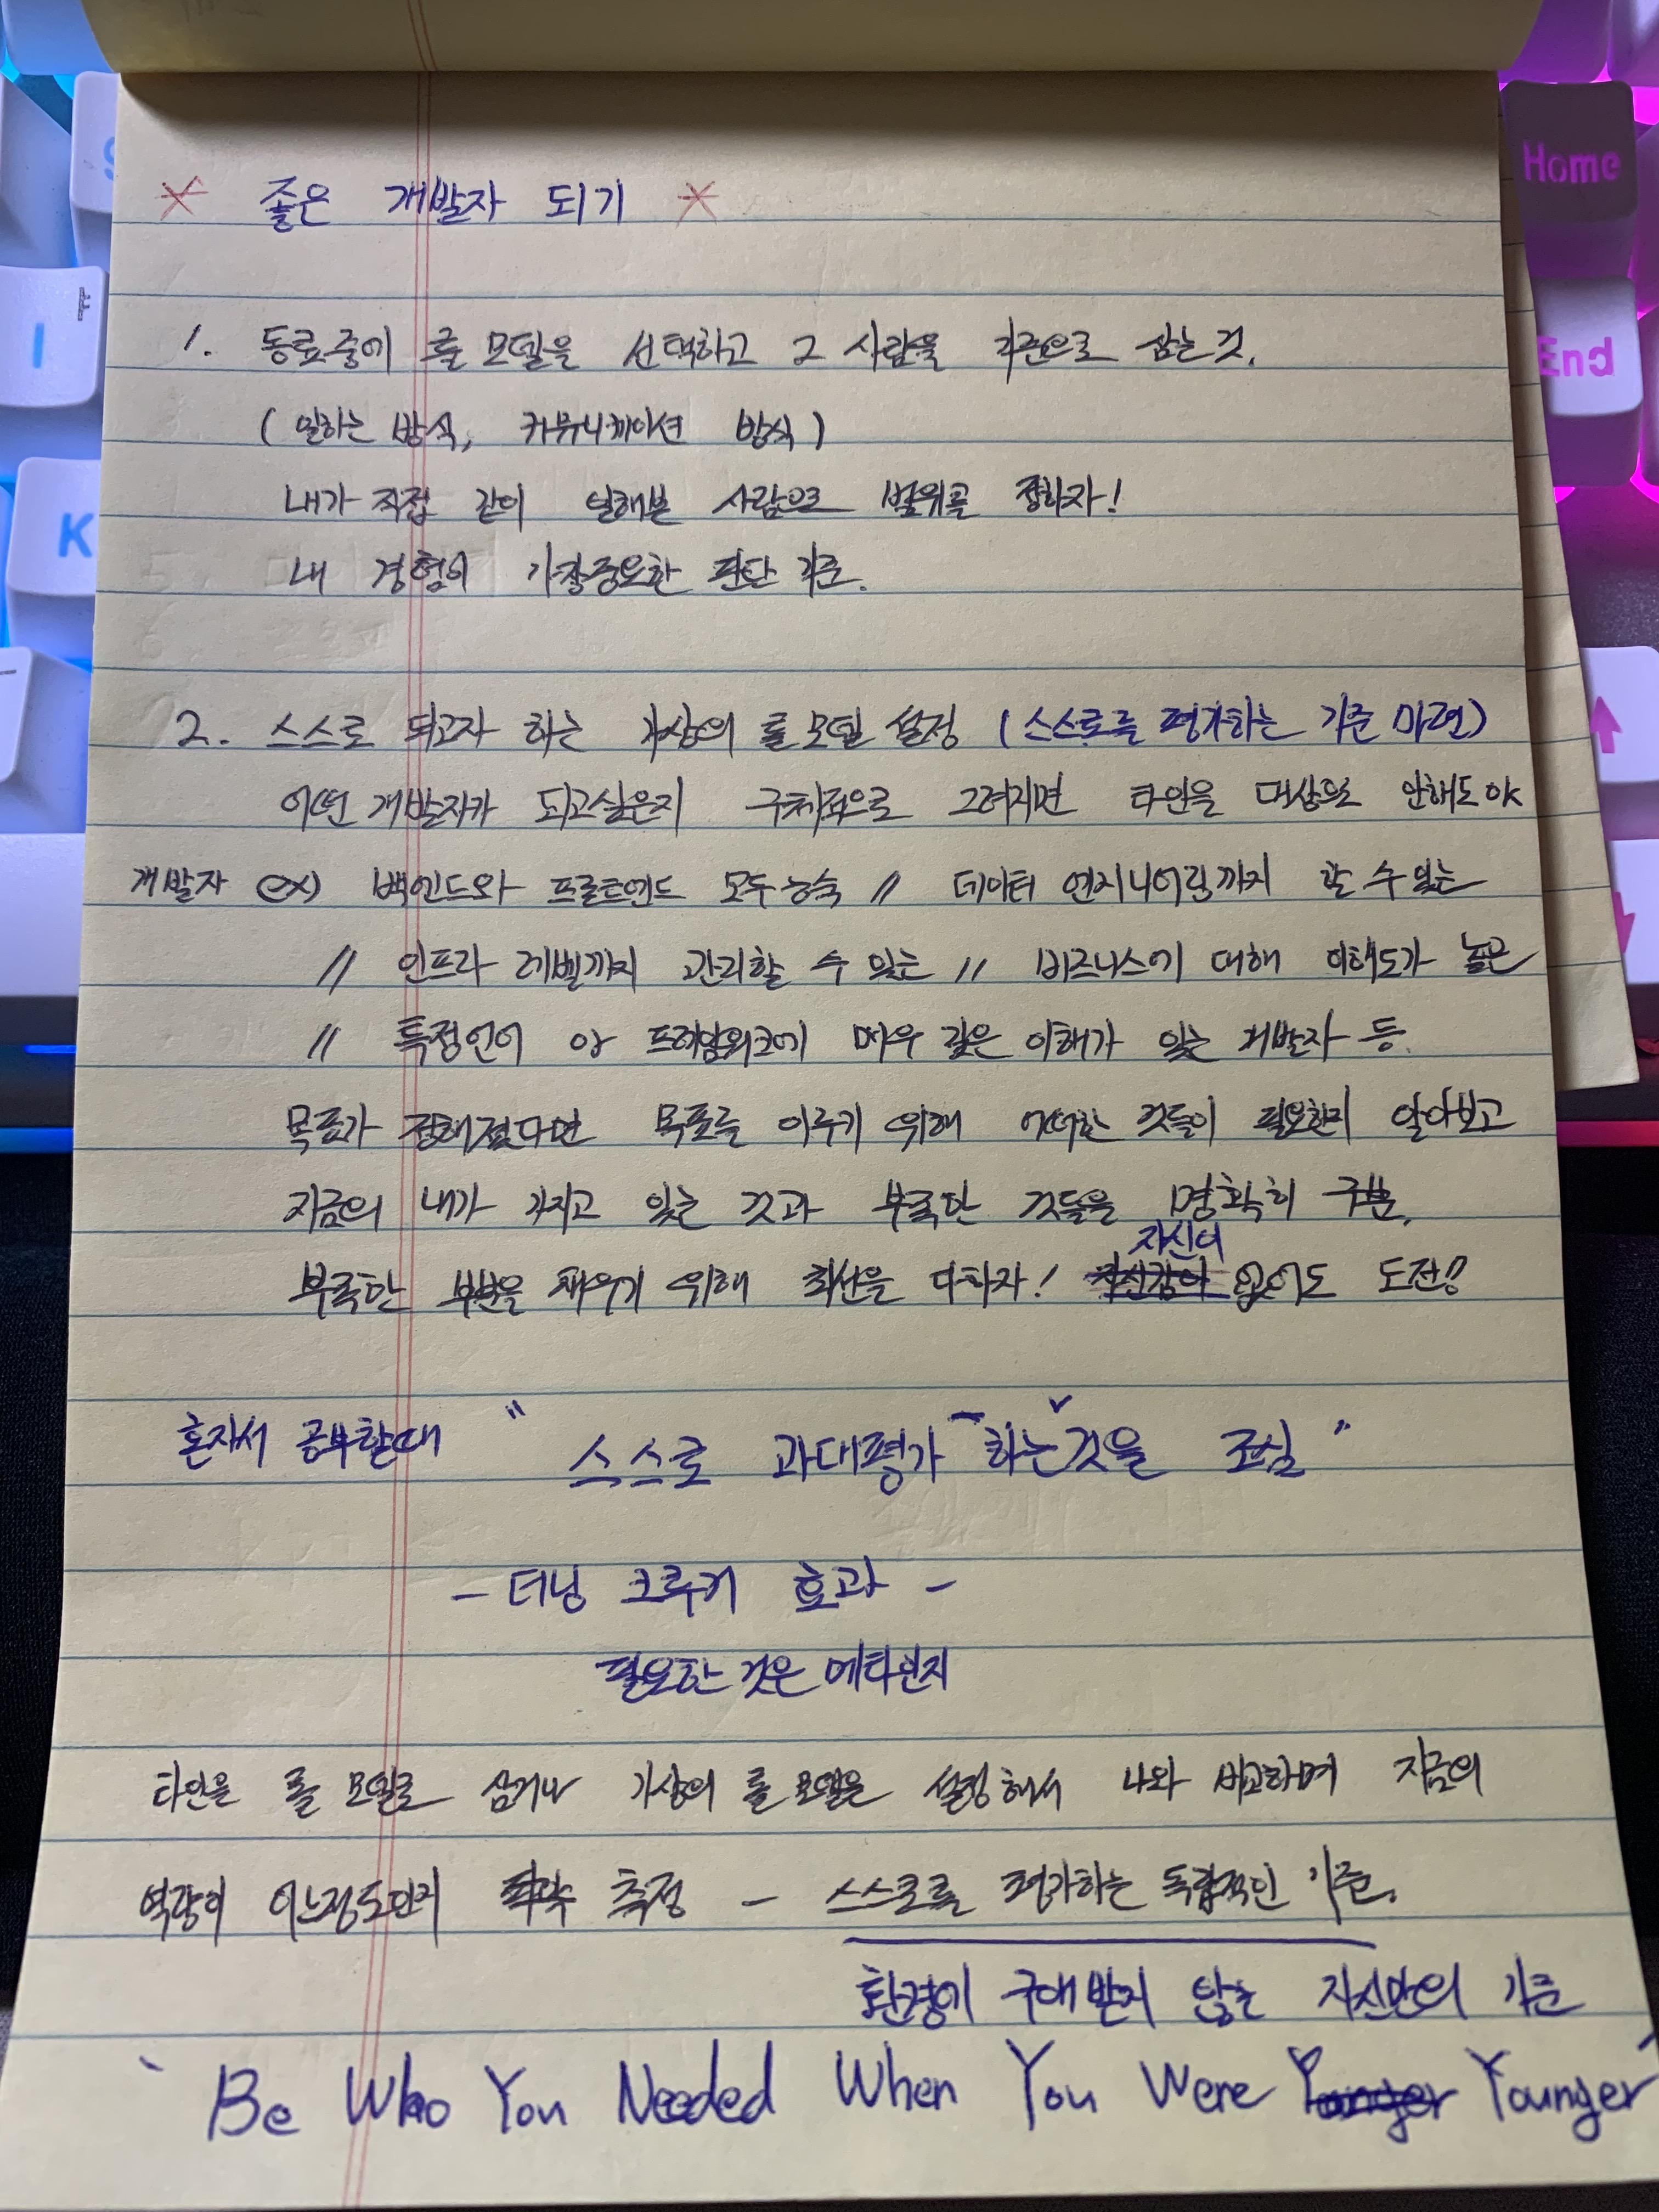 좋은 개발자 되기
1. 동료중에 롤 모델을 선택하고 그 사람을 기준으로 삼는것.
( 일하는 방식, 커뮤니케이션 방식 )
내가 직접 같이 일해본 사람으로 범위를 정하자!
내 경험이 가장중요한 판단 기준.
2. 스스로 되고자 하는 가상의 롤 모델 설정 (스스로를 평가하는 기준 마련)
어떤 개발자가 되고싶은지 구체적으로 그려지면 타인을 대상으로 안해도 OK
개발자 ex) 백엔드와 프론트엔드 모두 능숙 // 데이터 엔지니어링까지 할 수 있는
// 인프라 레벨까지 관리할 수 있는 // 비즈니스에 대해 이해도가 높은
// 특정언어 or 프레임워크에 매우 깊은 이해가 있는 개발자 등.
목표가 정해졌다면 목표를 이루기 위해 어떠한 것들이 필요한지 알아보고
지금의 내가 가지고 있는 것과 부족한 것들을 명확히 구분.
부족한 부분을 채우기 위해 최선을 다하자! 자신이 없어도 도전!!
혼자서 공부할때 " 스스로 과대평가 하는 것을 조심 "
- 더닝 크루거 효과 -
필요한 것은 메타인지
타인을 롤 모델로 삼거나 가상의 롤 모델을 설정해서 나와 비교하며 지금의
역량이 어느정도인지 측정 - 스스로를 평가하는 독립적인 기준.
환경에 구애받지 않는 자신만의 기준
Be Who You Needed When You Were Younger